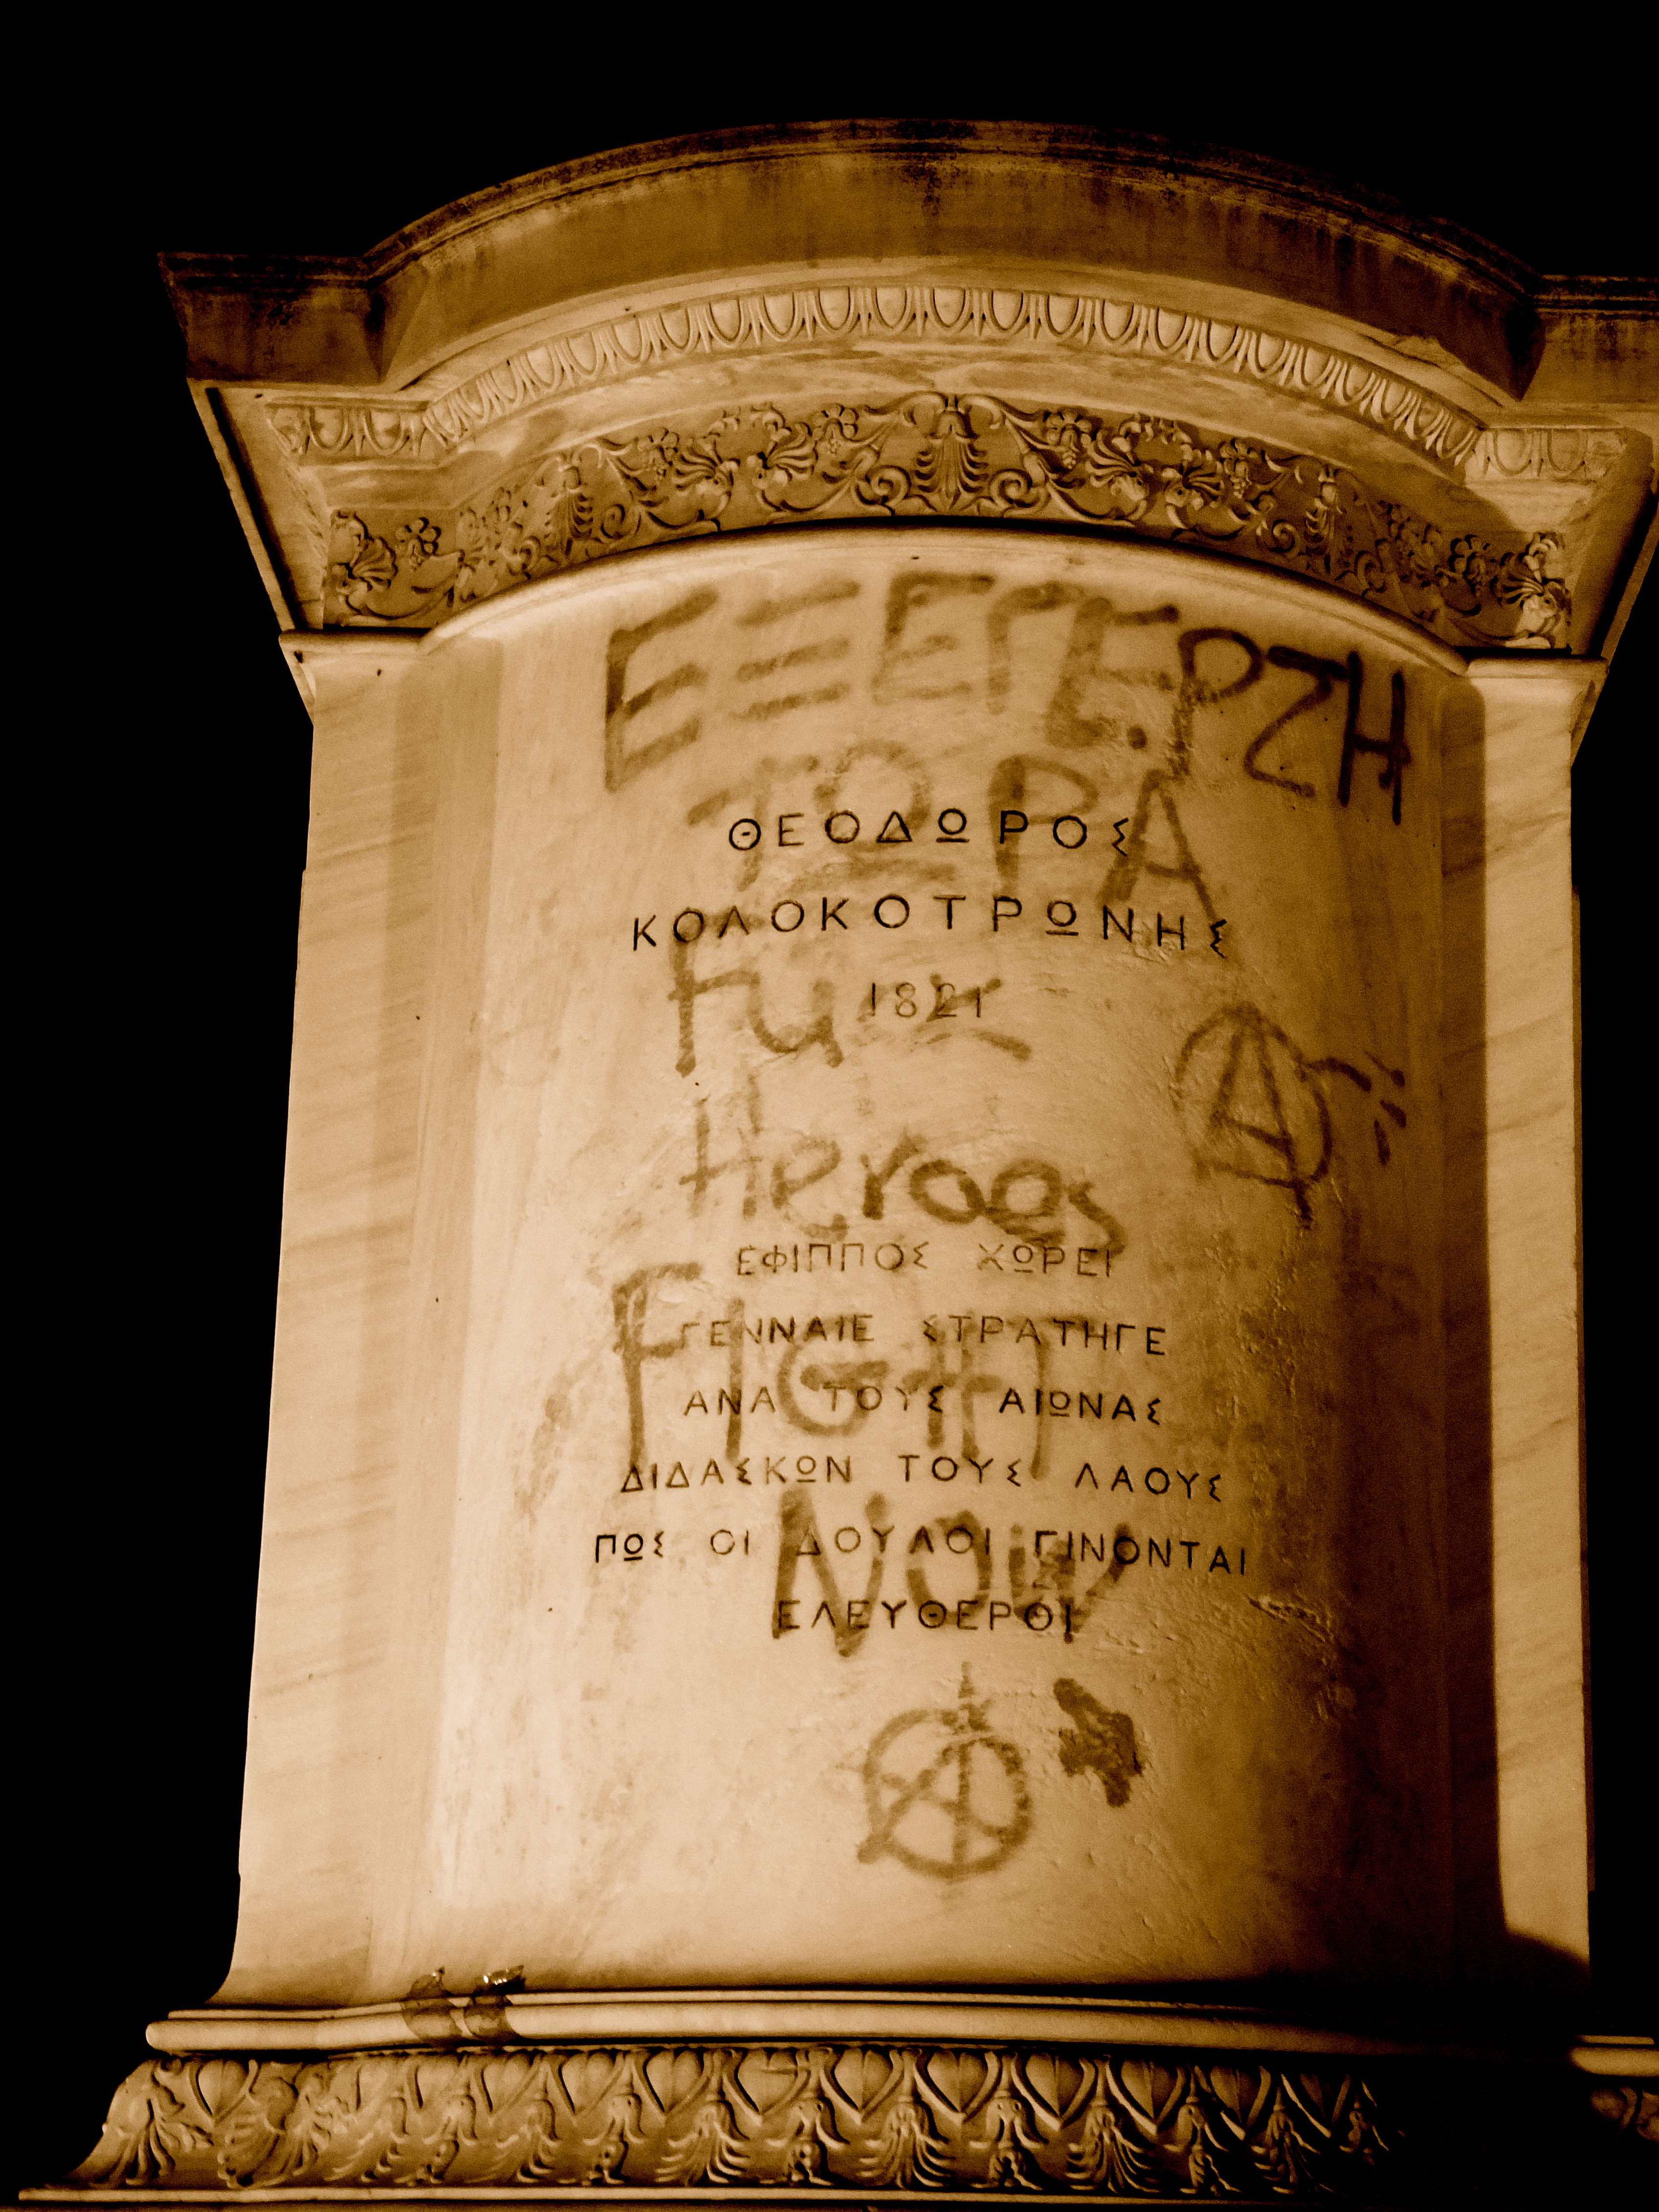 ΕΞΕΓΕΡΣΗ
ΤΩΡΑ
ΘΕΟΔΩΡΟΣ
ΚΟΛΟΚΟΤΡΩΝΗΣ
1821
Heroes
ΕΦΙΠΠΟΣ ΧΩΡΕΙ
ΓΕΝΝΑΙΕ ΣΤΡΑΤΗΓΕ
FIGHT
ΑΝΑ ΤΟΥΣ ΑΙΩΝΑΣ
ΔΙΔΑΣΚΩΝ ΤΟΥΣ ΛΑΟΥΣ
ΠΩΣ ΟΙ ΔΟΥΛΟΙ ΓΙΝΟΝΤΑΙ
NOW
ΕΛΕΥΘΕΡΟΙ